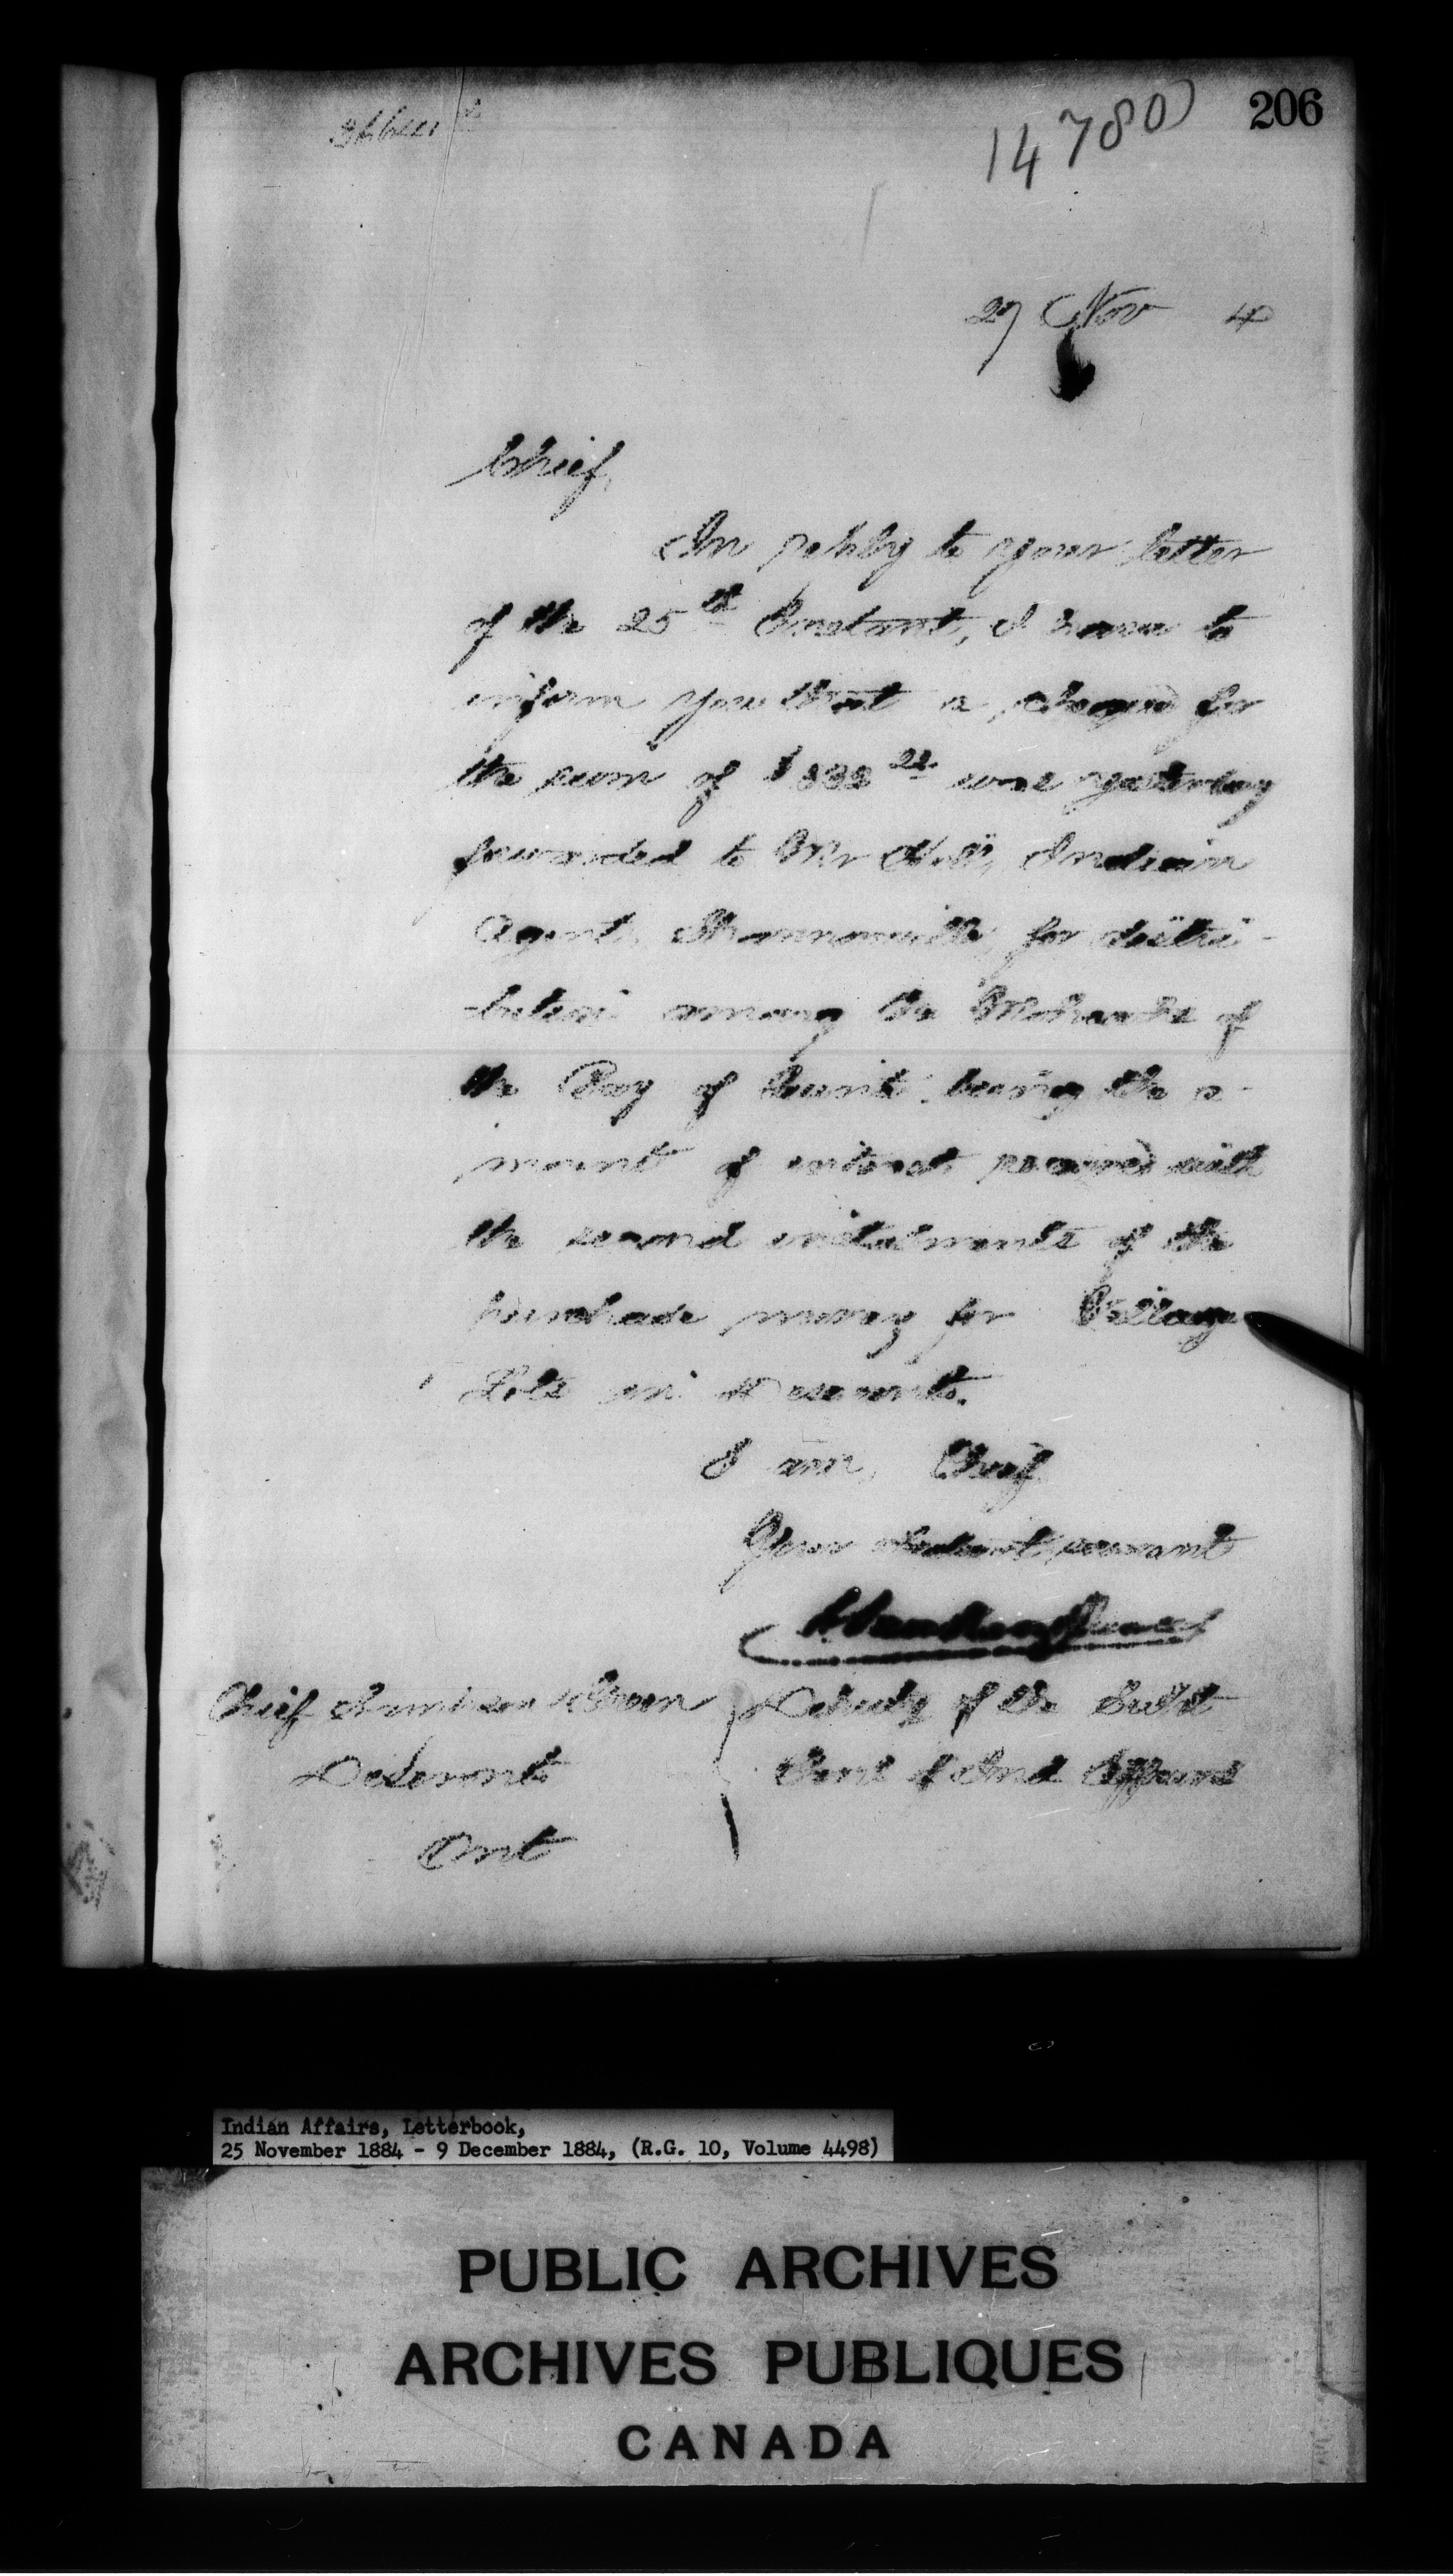 206
14780
27 Nov 4
Chief,
In reply to your letter
of the 25th Instant, I have to
inform you that a cheque for
the sum of was yesterday
forwarded to Mr Hill, Indian
Agent, Shannonville, for distri-
-bution among the Mohawks of
the Bay of Quinté being the a-
mount of interest received with
the second instalments of the
purchase money for Village
Lots in Deseronto.
I am, Chief
Your obedient servant
L. Vankoughnet
Chief Sampson Green
Deputy of the Supt
Deseronto
Genl of Ind Affairs
Ont
Indian Affairs, Letterbook,
25 November 1884 - 9 December 1884, (R.G. 10, Volume 4498)
PUBLIC ARCHIVES
ARCHIVES PUBLIQUES
CANADA